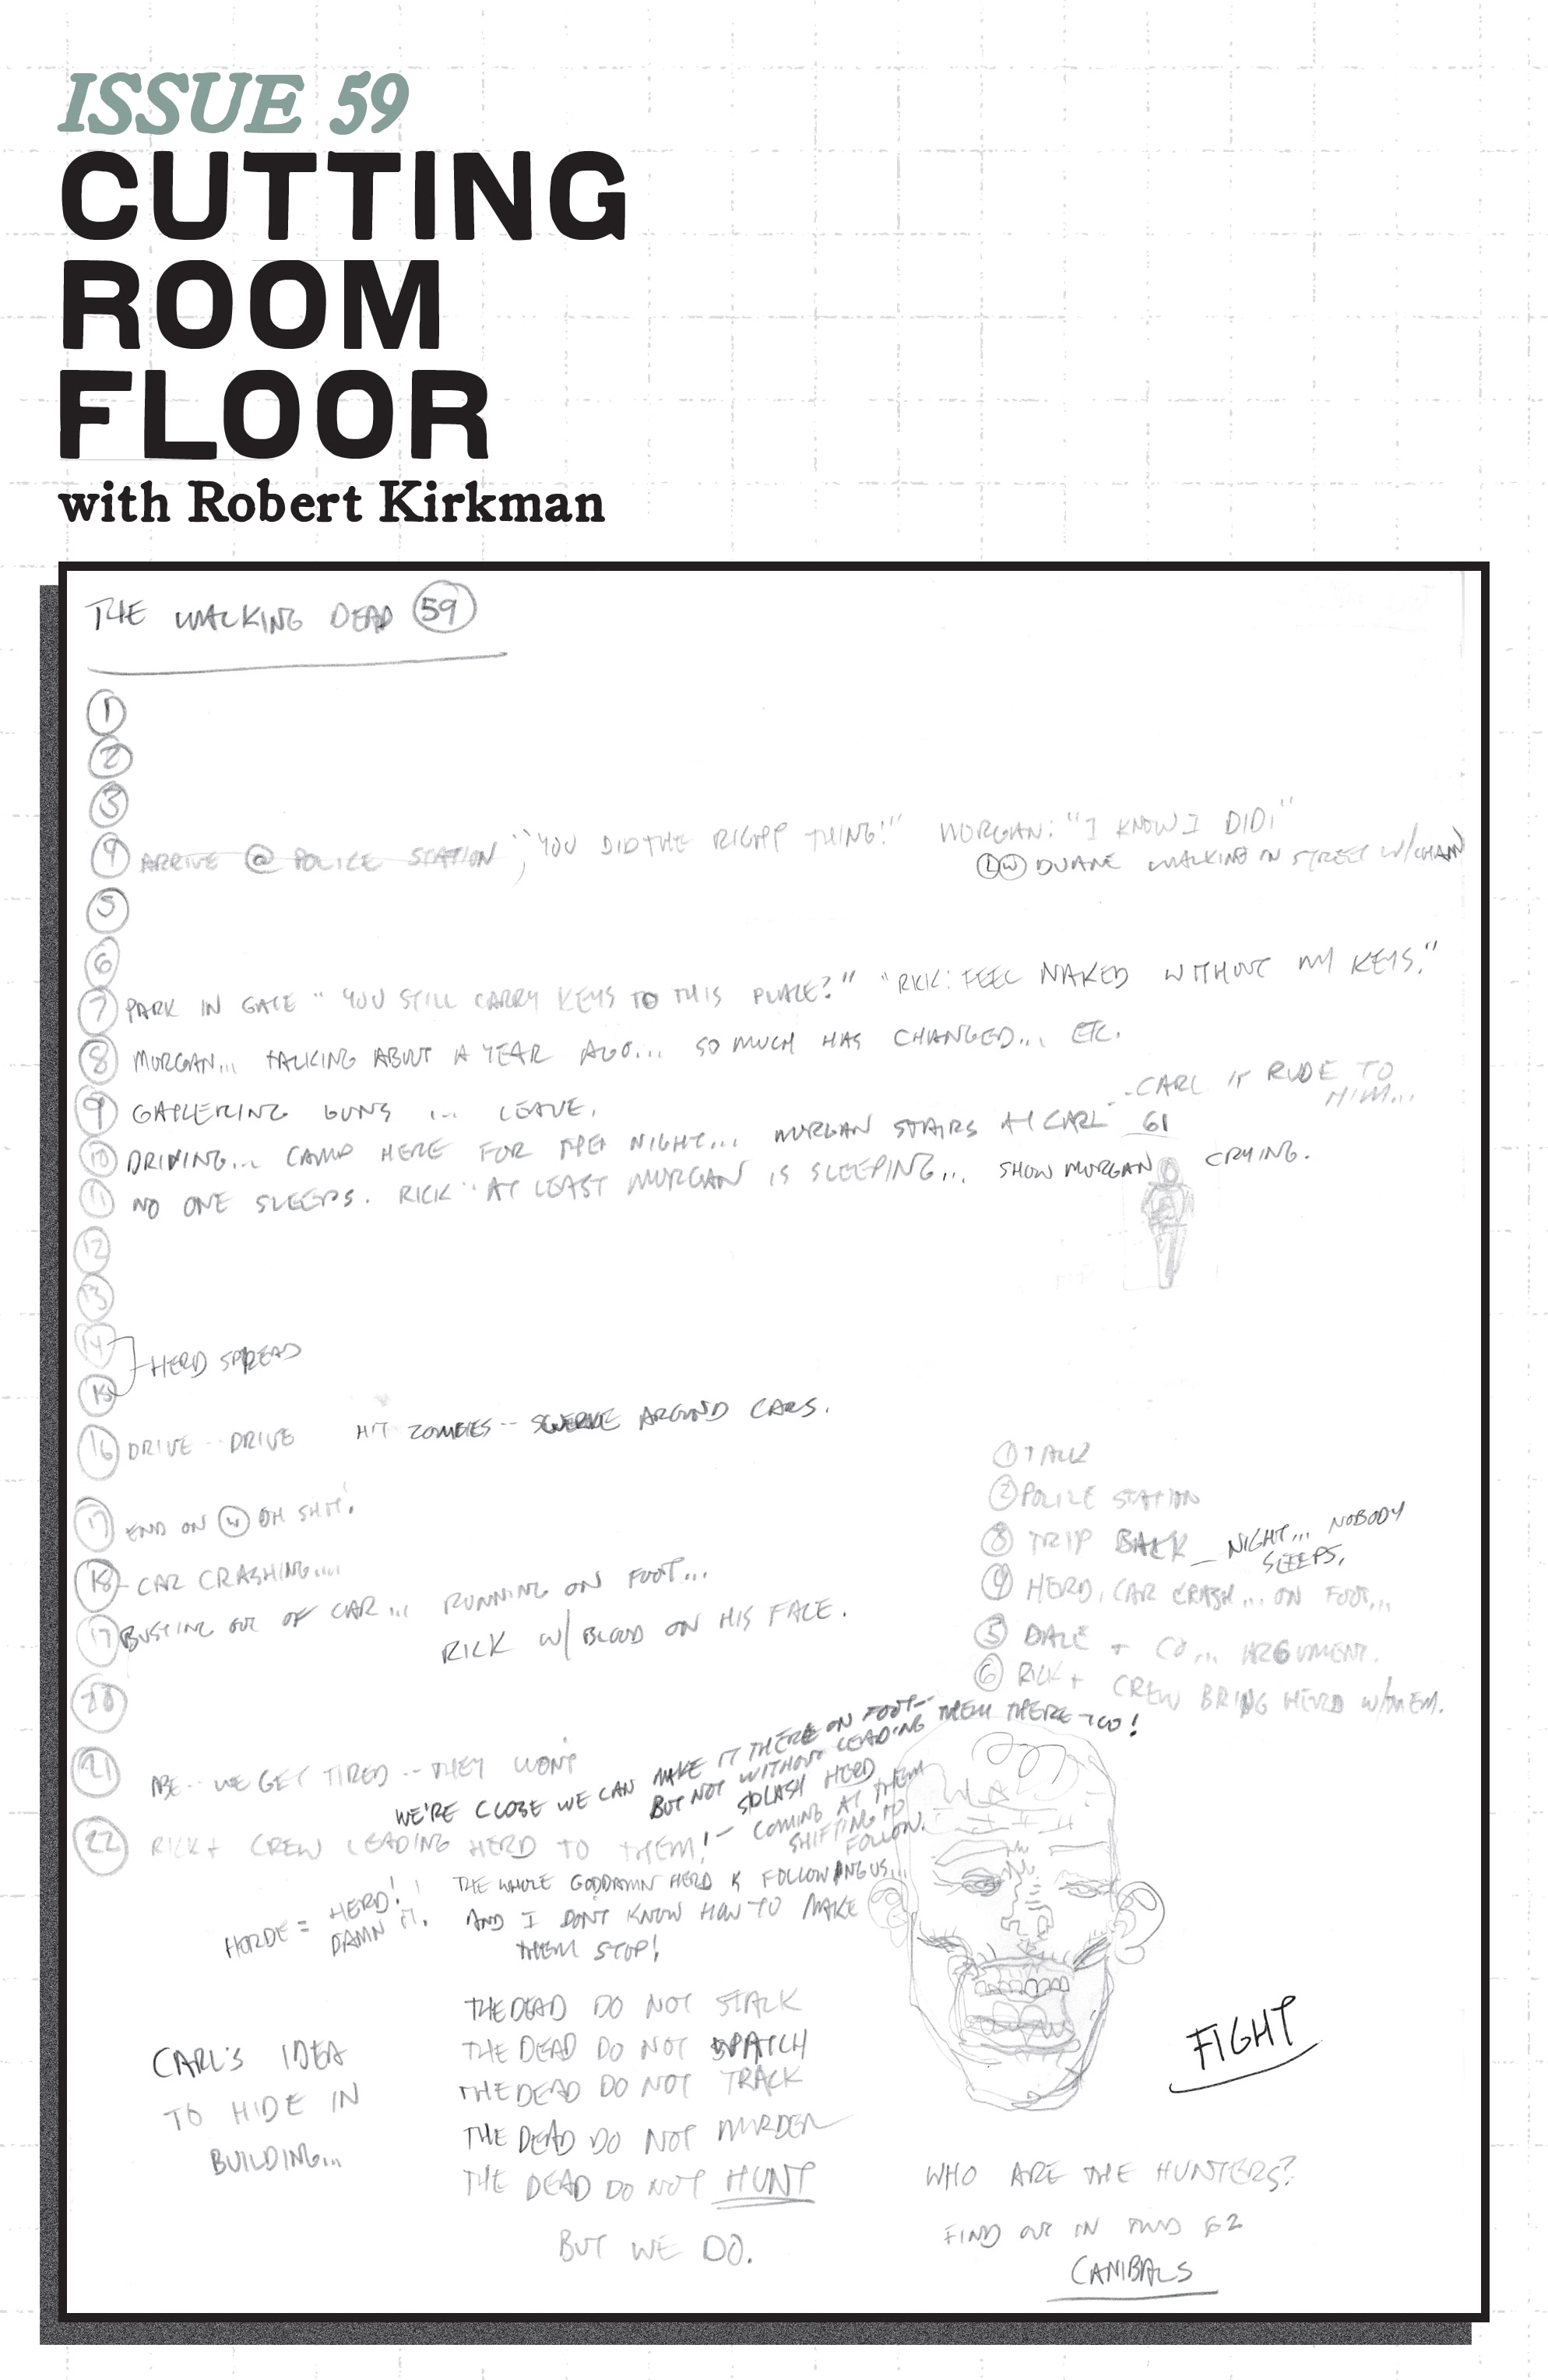 ISSUE 59
CUTTING
ROOM
FLOOR
with Robert Kirkman
THE WALKING DEAD 59
1
2
3
4 ARRIVE @ POLICE STATION, "YOU DID THE RIGHT THING!" MORGAN: "I KNOW I DID!"
DUANE WALKING IN STREET W/CHAIN
5
6
7 PARK IN GATE "YOU STILL CARRY KEYS TO THIS PLACE?" "RICK: FEEL NAKED WITHOUT MY KEYS."
8 MORGAN... TALKING ABOUT A YEAR AGO... SO MUCH HAS CHANGED... ETC.
9 GATHERING GUNS ... LEAVE.
--CARL IS RUDE TO
HIM...
10 DRIVING... CAMP HERE FOR THE NIGHT... MORGAN STAIRS AT CARL 61
11 NO ONE SLEEPS. RICK-- AT LEAST MORGAN IS SLEEPING... SHOW MORGAN CRYING.
12
13
14
15
HERD SPREAD
16 DRIVE -- DRIVE HIT ZOMBIES -- SWERVE AROUND CARS.
17 END ON W OH SHIT!
18 - CAR CRASHING....
19 BUSTING OUT OF CAR... RUNNING ON FOOT...
RICK W/ BLOOD ON HIS FACE.
20
1 TALK
2 POLICE STATION
3 TRIP BACK - NIGHT... NOBODY
SLEEPS.
4 HERD, CAR CRASH... ON FOOT...
5 DALE + CO... ARGUMENT.
6 RICK + CREW BRING HERD W/THEM.
21 ABE -- WE GET TIRED -- THEY WON'T
WE'RE CLOSE WE CAN MAKE IT THERE ON FOOT--
BUT NOT WITHOUT LEADING THEM THERE TOO!
22 RICK + CREW LEADING HERD TO THEM! - SPLASH HERD
COMING AT THEM
SHIFTING TO
FOLLOW.
HORDE = HERD!
DAMN IT.
THE WHOLE GODDAMN HERD IS FOLLOWING US...
AND I DON'T KNOW HOW TO MAKE
THEM STOP!
CARL'S IDEA
TO HIDE IN
BUILDING...
THE DEAD DO NOT STALK
THE DEAD DO NOT WATCH
THE DEAD DO NOT TRACK
THE DEAD DO NOT MURDER
THE DEAD DO NOT HUNT
BUT WE DO.
FIGHT
WHO ARE THE HUNTERS?
FIND OUT IN TWD 62
CANIBALS